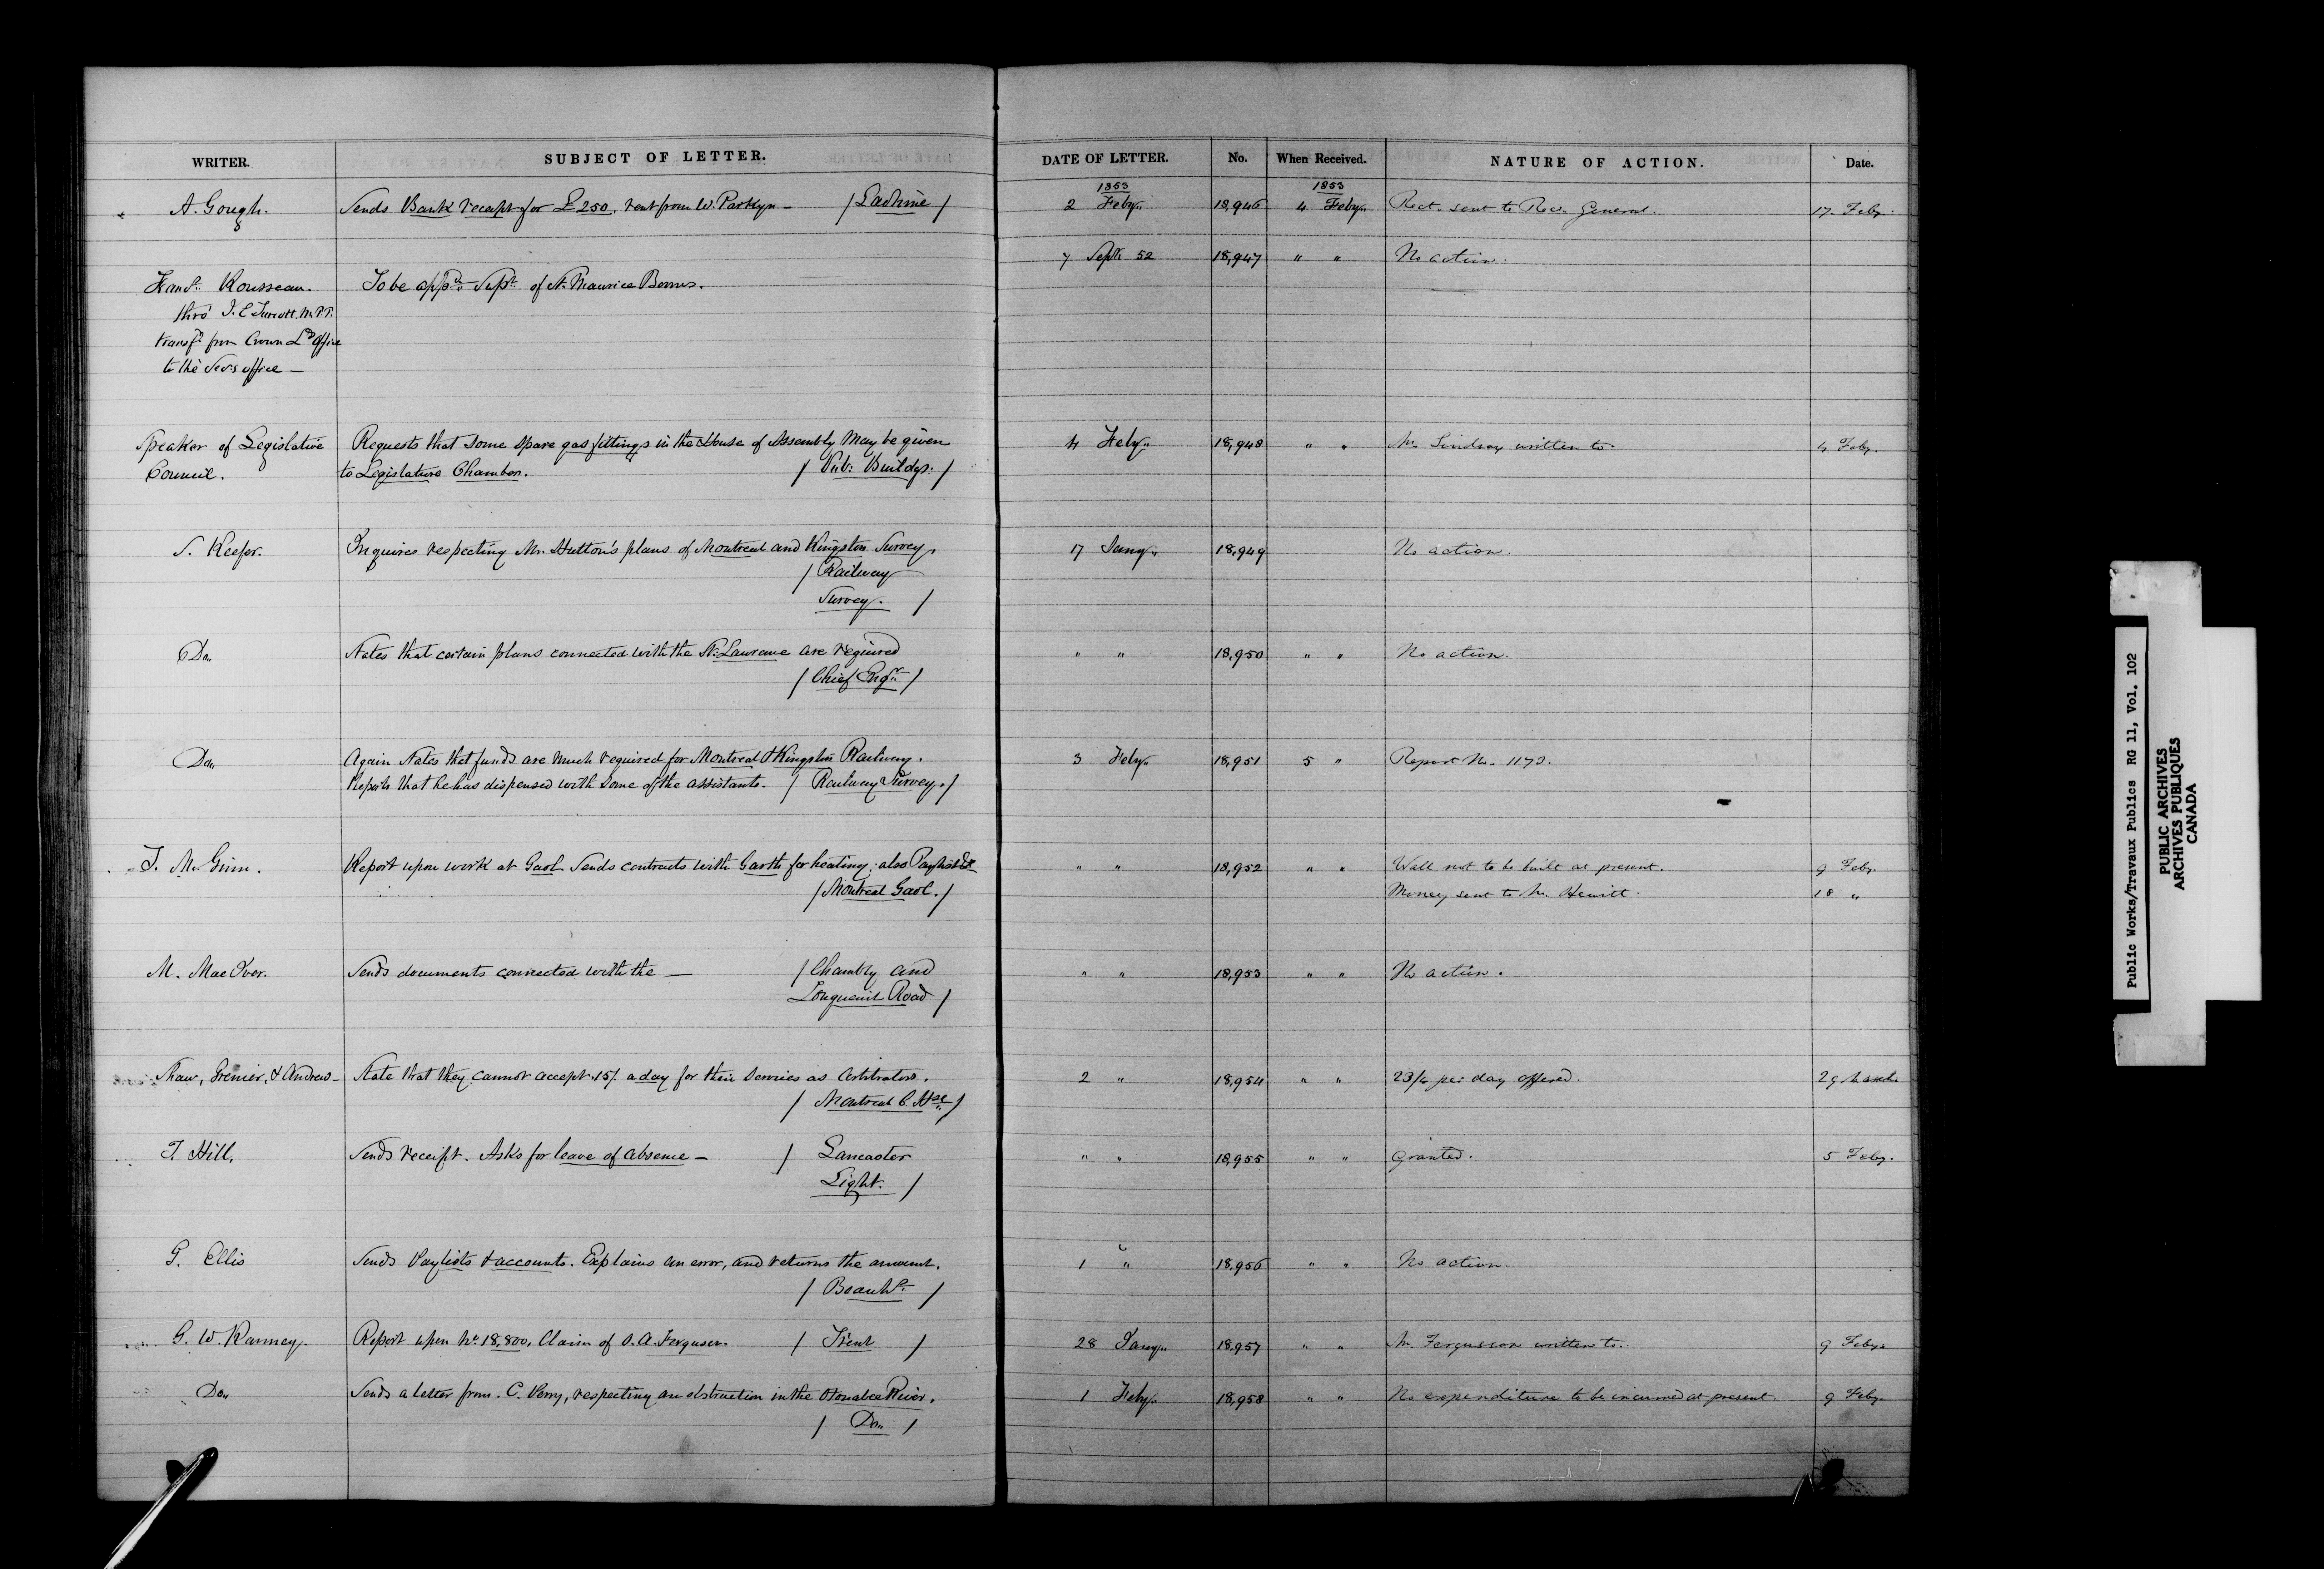 WRITER. SUBJECT OF LETTER. DATE OF LETTER. No. When Received. NATURE OF ACTION. Date.
1853 1853
A. Gough. Sends Bank receipt for £250, rent from W. Parkyn — / Lachine / 2 Feby. 18,946 4 Feby. Rect. sent to Rec. General. 17. Feby.
7 Sept. 52 18,947 " " No action.
Rousseau. To be appd. Supt. of St. Maurice Booms.
thro' J. E. Turcott. M.P.P.
transfd. from Crown Ld. Office
to the Secs office —
Speaker of Legislative Requests that some spare gas fittings in the House of Assembly may be given 4 Feby. 18,948 " " Mr. Lindsay written to. 4 Feby.
Council. to Legislature Chamber. / Pub: Buildgs. /
S. Keefer. Inquires respecting Mr. Hutton's plans of Montreal and Kingston Survey. 17 Jany. 18,949 No action.
/ Railway
Survey. /
Do. States that certain plans connected with the St. Lawrence are required " " 18,950 " " No action.
/ Chief Engr. /
Do. Again States that funds are much required for Montreal & Kingston Railway. 3 Feby. 18,951 5 " Report No. 1173.
Reports that he has dispensed with some of the assistants. / Railway Survey. /
J. McGinn. Report upon work at Gaol. Sends contracts with Garth for heating; also Paylist &c " " 18,952 " " Wall not to be built at present. 9 Feby.
/ Montreal Gaol. / Money sent to Mr. Hewitt. 18 "
M. MacIver. Sends documents connected with the — / Chambly and " " 18,953 " " No action.
Longueuil Road /
Shaw, Grenier, & Andrew — State that they cannot accept 15/. a day for their services as Arbitrators. 2 " 18,954 " " 23/4 per day offered. 29 March
/ Montreal C. Hse /
T. Hill. Sends receipt. Asks for leave of absence — / Lancaster " " 18,955 " " Granted. 5 Feby.
Light. /
G. Ellis Sends Paylists & accounts. Explains an error, and returns the amount. 1 " 18,956 " " No action.
/ Beauhs. /
G. W. Ranney. Report upon No. 18,800, Claim of A. Ferguson. / Trent / 28 Jany. 18,957 " " Mr. Fergusson written to. 9 Feby.
Do. Sends a letter from C. Perry, respecting an obstruction in the Otonabee River. 1 Feby. 18,958 " " No expenditure to be incurred at present. 9 Feby.
/ Do. /
Public Works/Travaux Publics RG 11, Vol. 102
PUBLIC ARCHIVES
ARCHIVES PUBLIQUES
CANADA